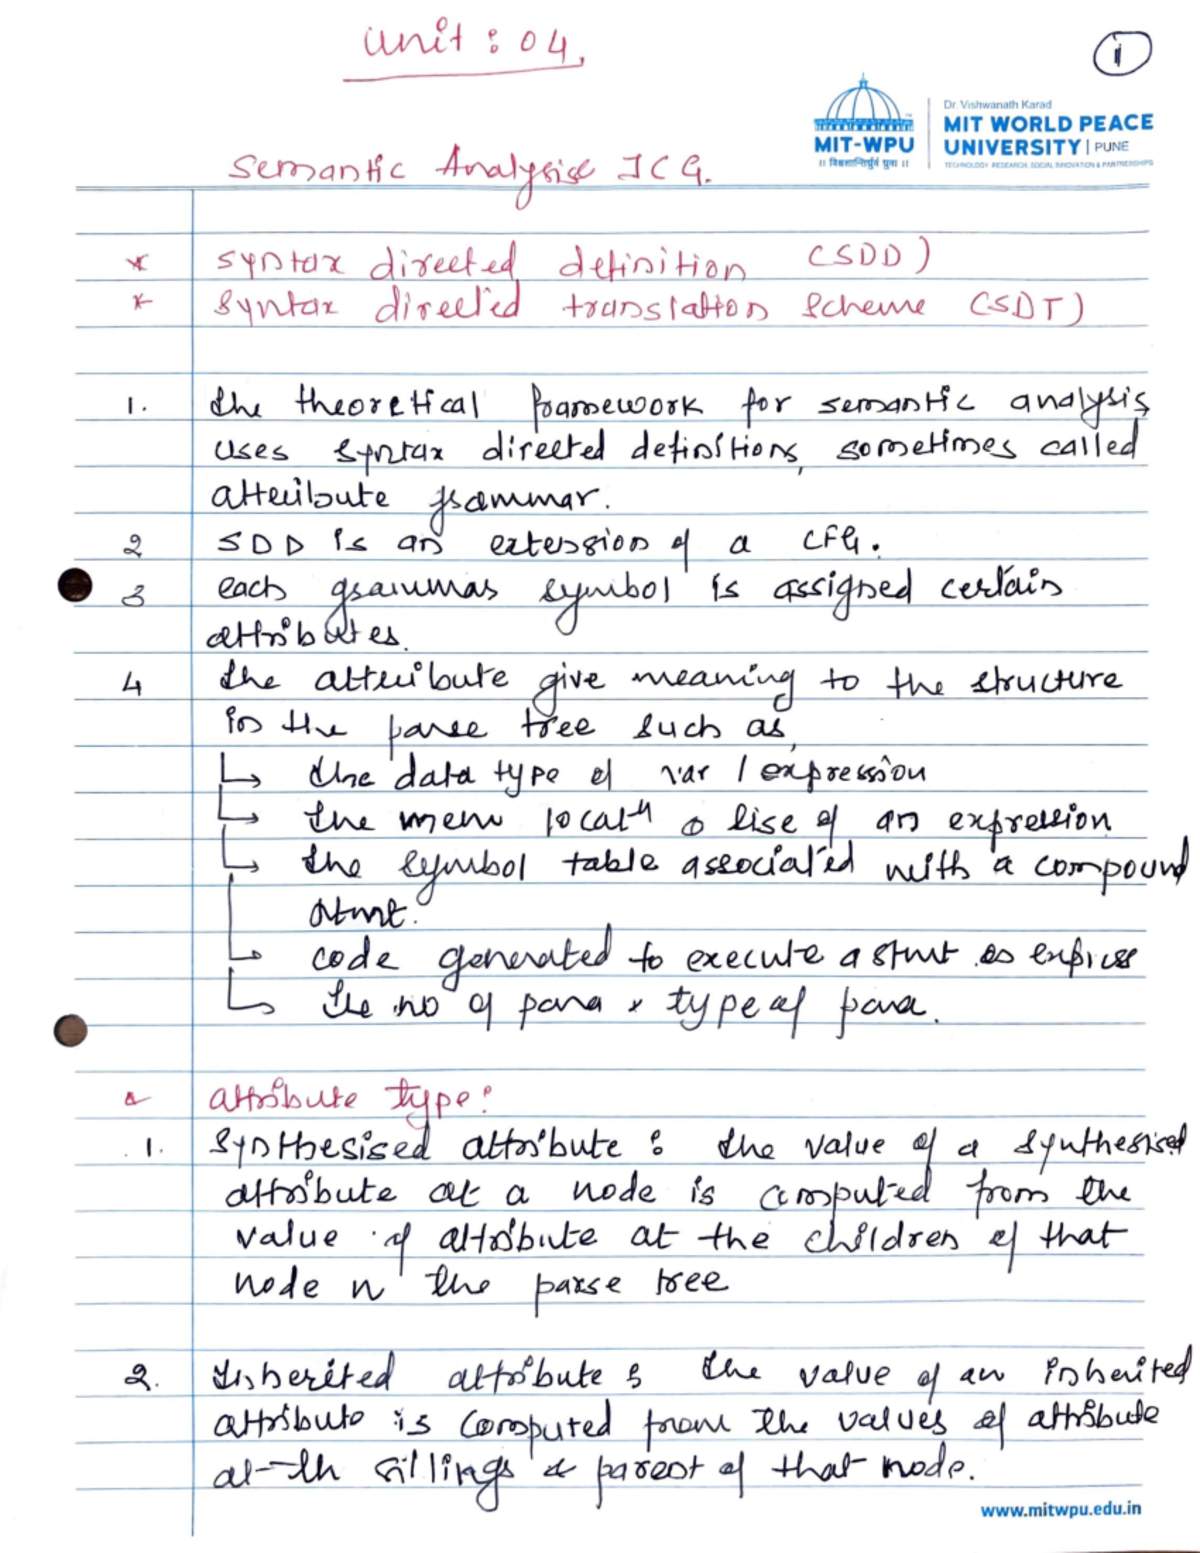 Unit : 04,
1
Dr. Vishwanath Karad
MIT WORLD PEACE
UNIVERSITY | PUNE
TECHNOLOGY, RESEARCH, SOCIAL INNOVATION & PARTNERSHIPS
MIT-WPU
॥ विश्वशान्तिर्ध्रुवं ध्रुवा ॥
Semantic Analysis & ICG.
* Syntax directed definition (SDD)
* Syntax directed translation Scheme (SDT)
1. the theoretical framework for semantic analysis
uses syntax directed definitions, sometimes called
attribute grammar.
2 SDD is an extension of a CFG.
3 each grammar symbol is assigned certain
attributes.
4 the attribute give meaning to the structure
in the parse tree such as
the data type of var / expression
the mem locatn o lise of an expression
the symbol table associated with a compound
stmt.
code generated to execute a stmt or express
the no of para & type of para.
attribute type:
1. Synthesised attribute : the value of a synthesised
attribute at a node is computed from the
value of attribute at the children of that
node n the parse tree
2. Inherited attribute : the value of an inherited
attribute is computed from the values of attribute
at th sillings & parent of that node.
www.mitwpu.edu.in